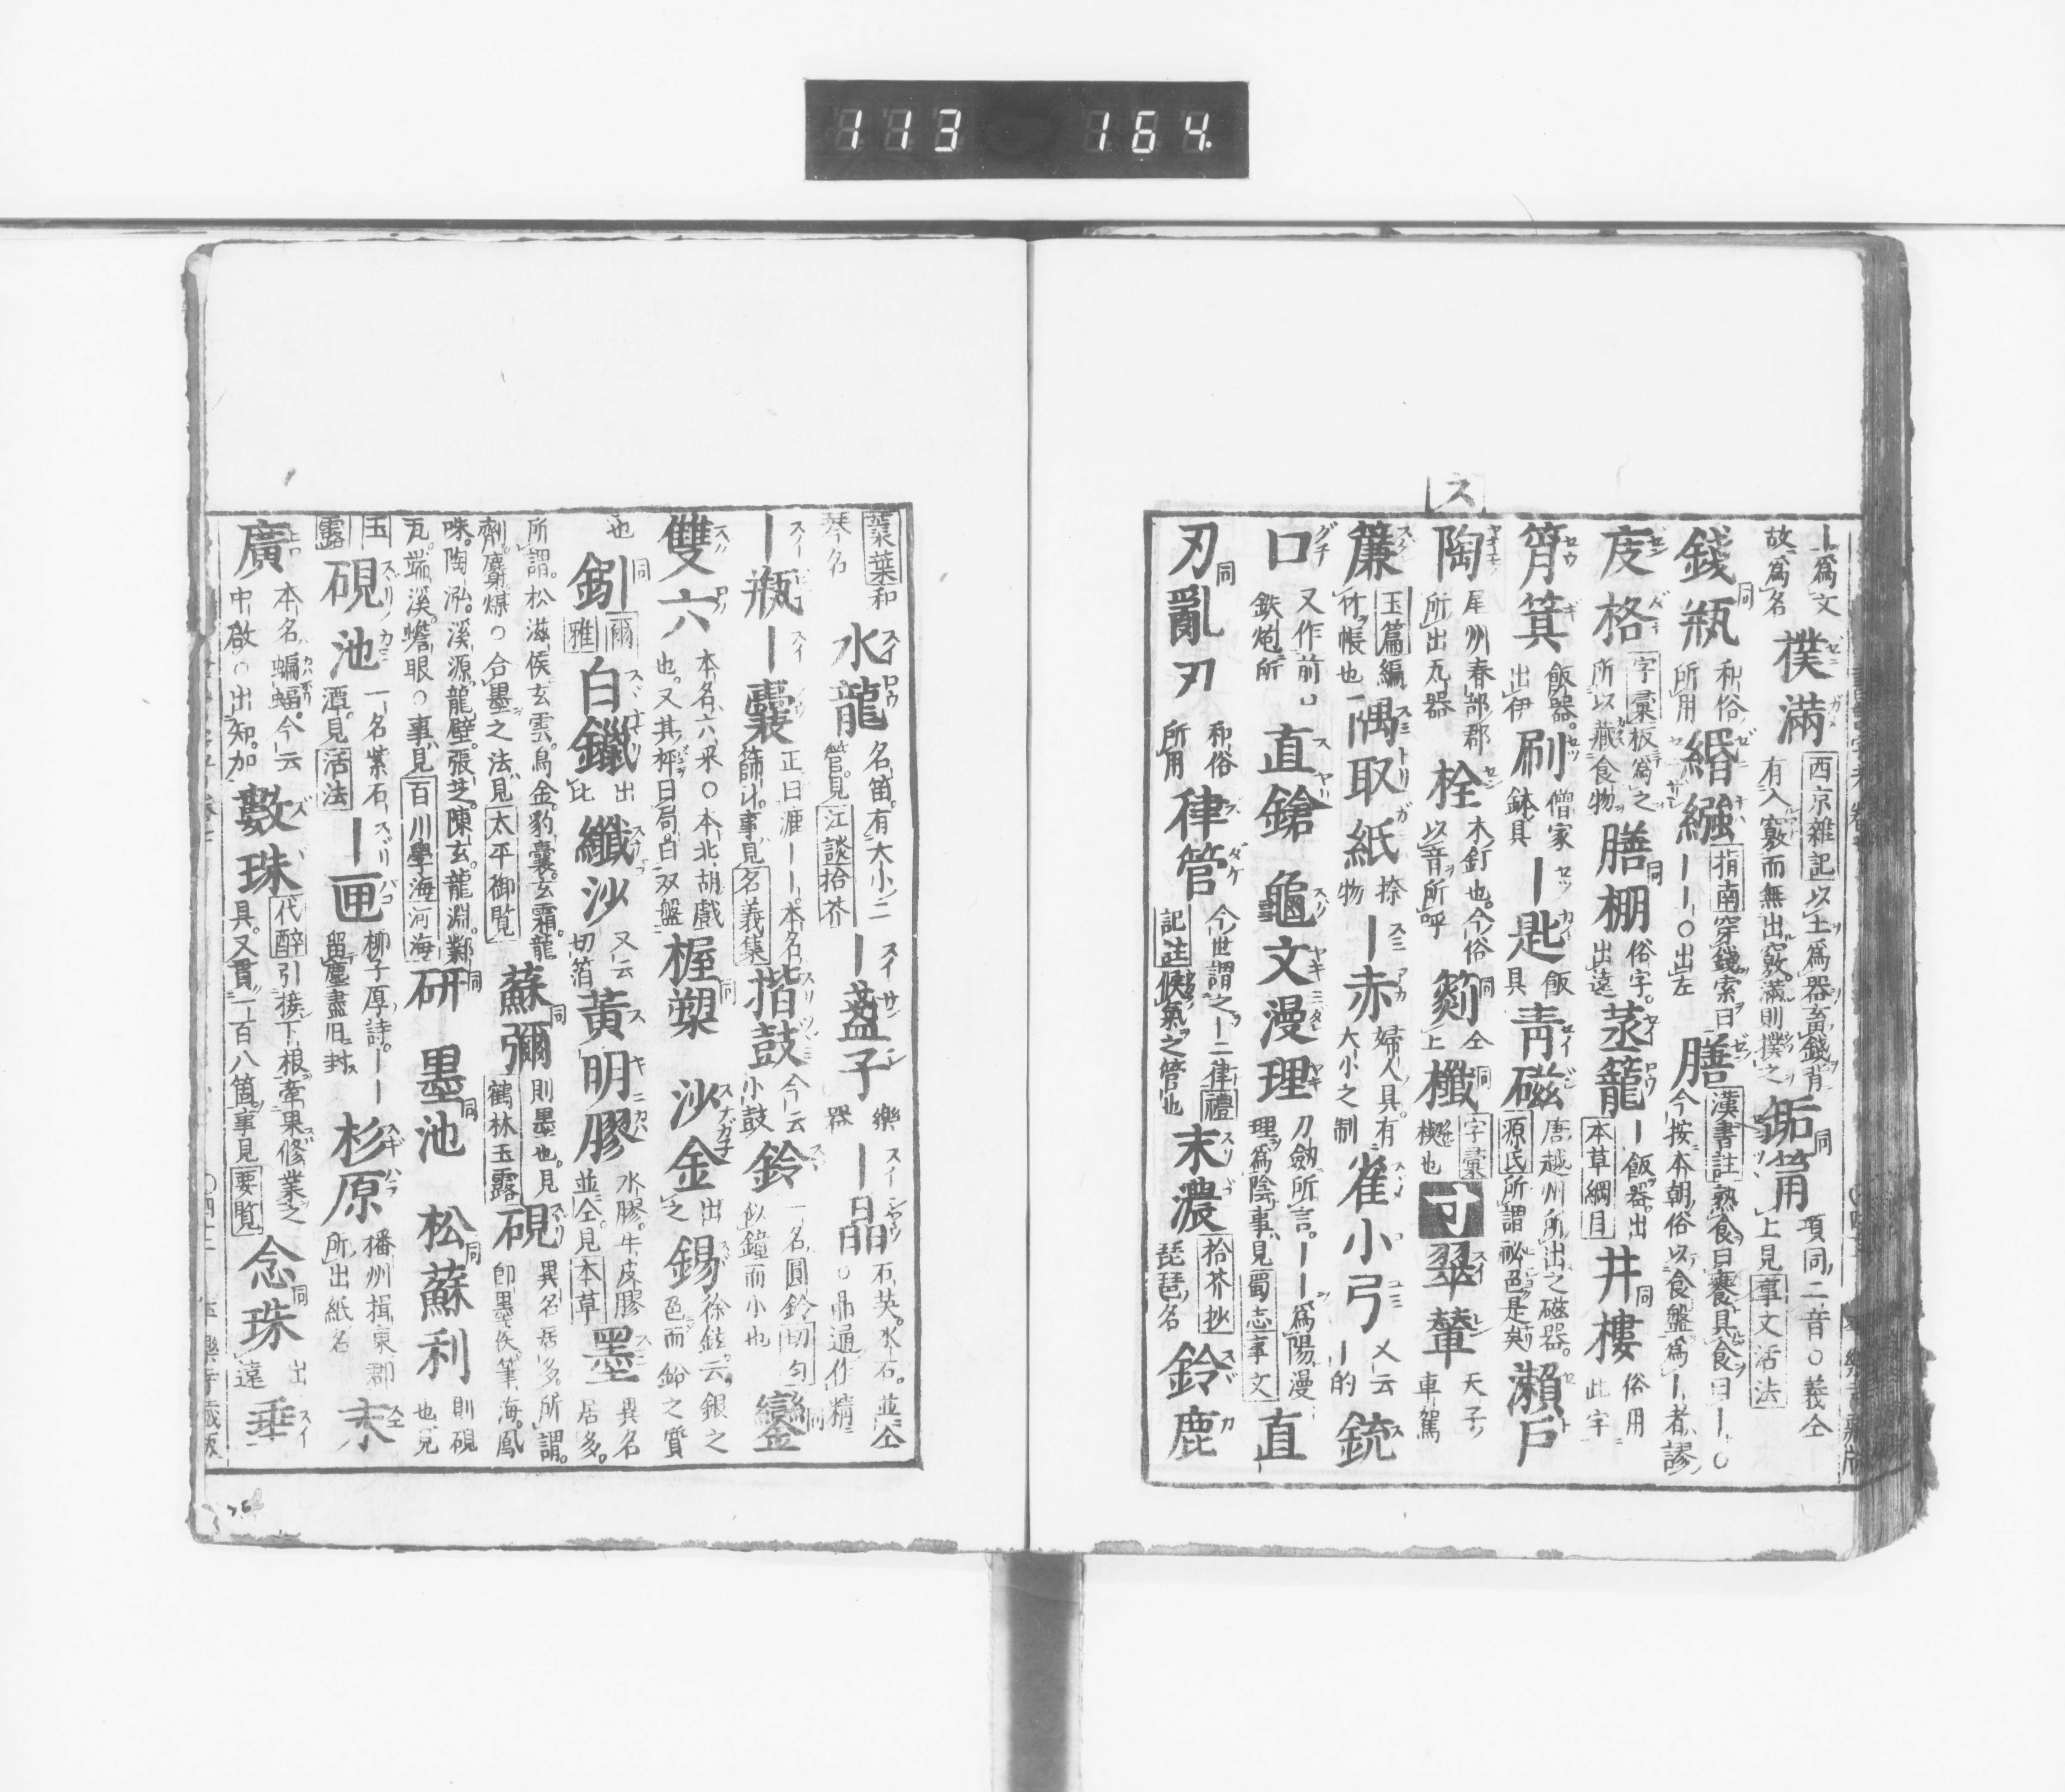 113 164.
ス
|為文故為名 撲滿 西京雜記以土為器畜錢背有入竅而無出竅滿則撲之 缿筩 同 項同二音○義仝上見事文活法
錢瓶 同 和俗所用 緡繦 指南穿錢索曰||○出左 膳 漢書註熟食曰饔具食曰|○今按本朝俗以食盤為|者謬
庋格 字彙板為之所以藏食物 膳棚 同 俗字出遠 蒸籠 |飯器出本草綱目 井樓 同 俗用此字
筲箕 飯器出伊 刷 僧家鉢具 |匙 飯具 青磁 唐越州所出之磁器源氏所謂祕色是矣 瀬戸
陶 尾州春部郡所出瓦器 栓 木釘也今俗以音所呼 同 仝上 櫼 同 字彙楔也 寸 翠輦 天子車駕
簾 玉篇編竹帳也 隅取紙 捺物 |赤 婦人具有大小之制 雀小弓 又云|的 銃
口 又作前鉄炮所 直鎗 龜文漫理 刀劔所言||為陽漫理為陰事見蜀志事文 直
刃 同 亂刃 和俗所用 律管 今世謂之|二律禮記註候氣之管也 末濃 拾芥抄琵琶名 鈴鹿
葉和琴名 水龍 名笛有大小二管見江談拾芥 |盞子 樂器 |晶 石英水石並仝○晶通作精
|瓶 |囊 正曰漉||本名篩斗事見名義集 揩鼓 今云小鼓 鈴 一名圓鈴似鐘而小也 鑾 同
雙六 本名六采○本北胡戲也又其枰曰局曰双盤 握槊 同 沙金 出之 錫 徐鉉云銀之色而鉛之質
也 鈏 同 爾雅 白鑞 出比 纖沙 又云切箔 黃明膠 水膠牛皮膠並仝見本草 墨 異名居多
所謂松滋侯玄雲烏金豹囊玄霜龍劑麝煤○合墨之法見太平御覧 蘇彌 同 則墨也見鶴林玉露 硯 異名居多所謂即墨侯筆海鳳
咮陶泓溪源龍壁張芝陳玄龍淵鄴瓦端溪蟾眼○事見百川學海河海 研 同 墨池 同 松蘇利 同 則硯也見
玉露 硯池 一名紫石潭見活法 |匣 柳子厚詩||留塵盡旧封 杉原 播州揖東郡所出紙名 末
廣 本名蝙蝠今云中啟○出知加 數珠 代醉引接下根牽果修業之具又貫一百八箇事見要覧 念珠 同 出遠 垂